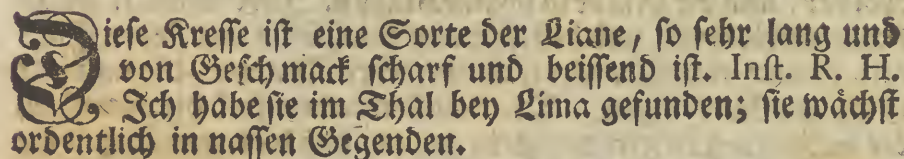 Dieſe Kreſſe iſt eine Sorte der Liane, ſo ſehr lang und
von Geſchmack ſcharf und beiſſend iſt. Inſt. R. H.
Ich habe ſie im Thal bey Lima gefunden; ſie wächſt
ordentlich in naſſen Gegenden.